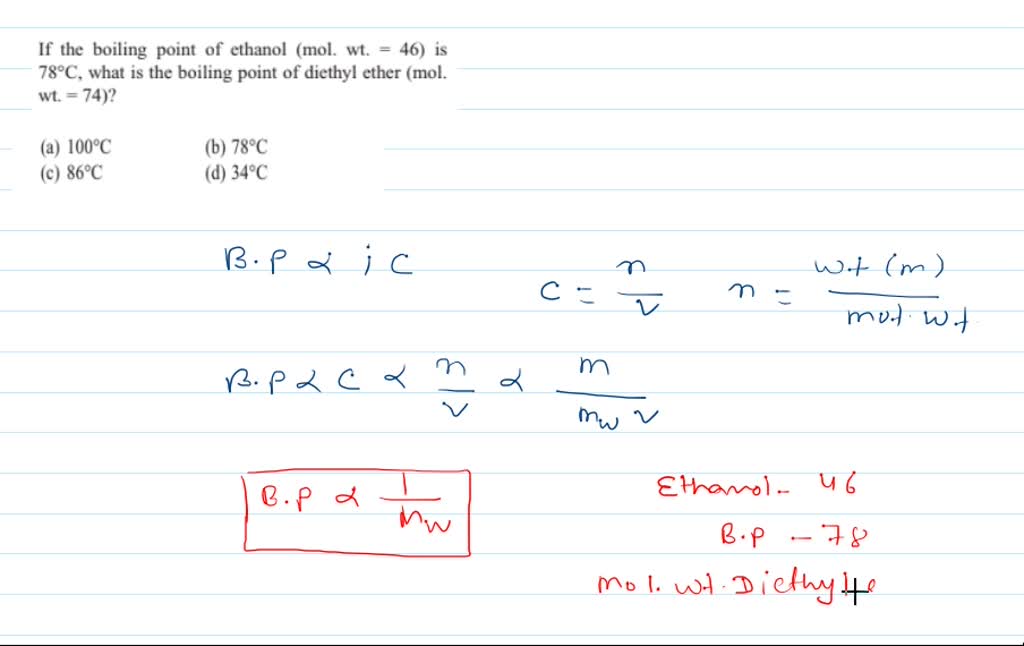 If the boiling point of ethanol (mol. wt. = 46) is
78°C, what is the boiling point of diethyl ether (mol.
wt. = 74)?
(a) 100°C (b) 78°C
(c) 86°C (d) 34°C
B.P α i C
C = n/V n = wt (m)/mol. wt
B.P α C α n/V α m/mw V
B.P α 1/Mw
Ethanol - 46
B.P - 78
mol. wt. Diethyl